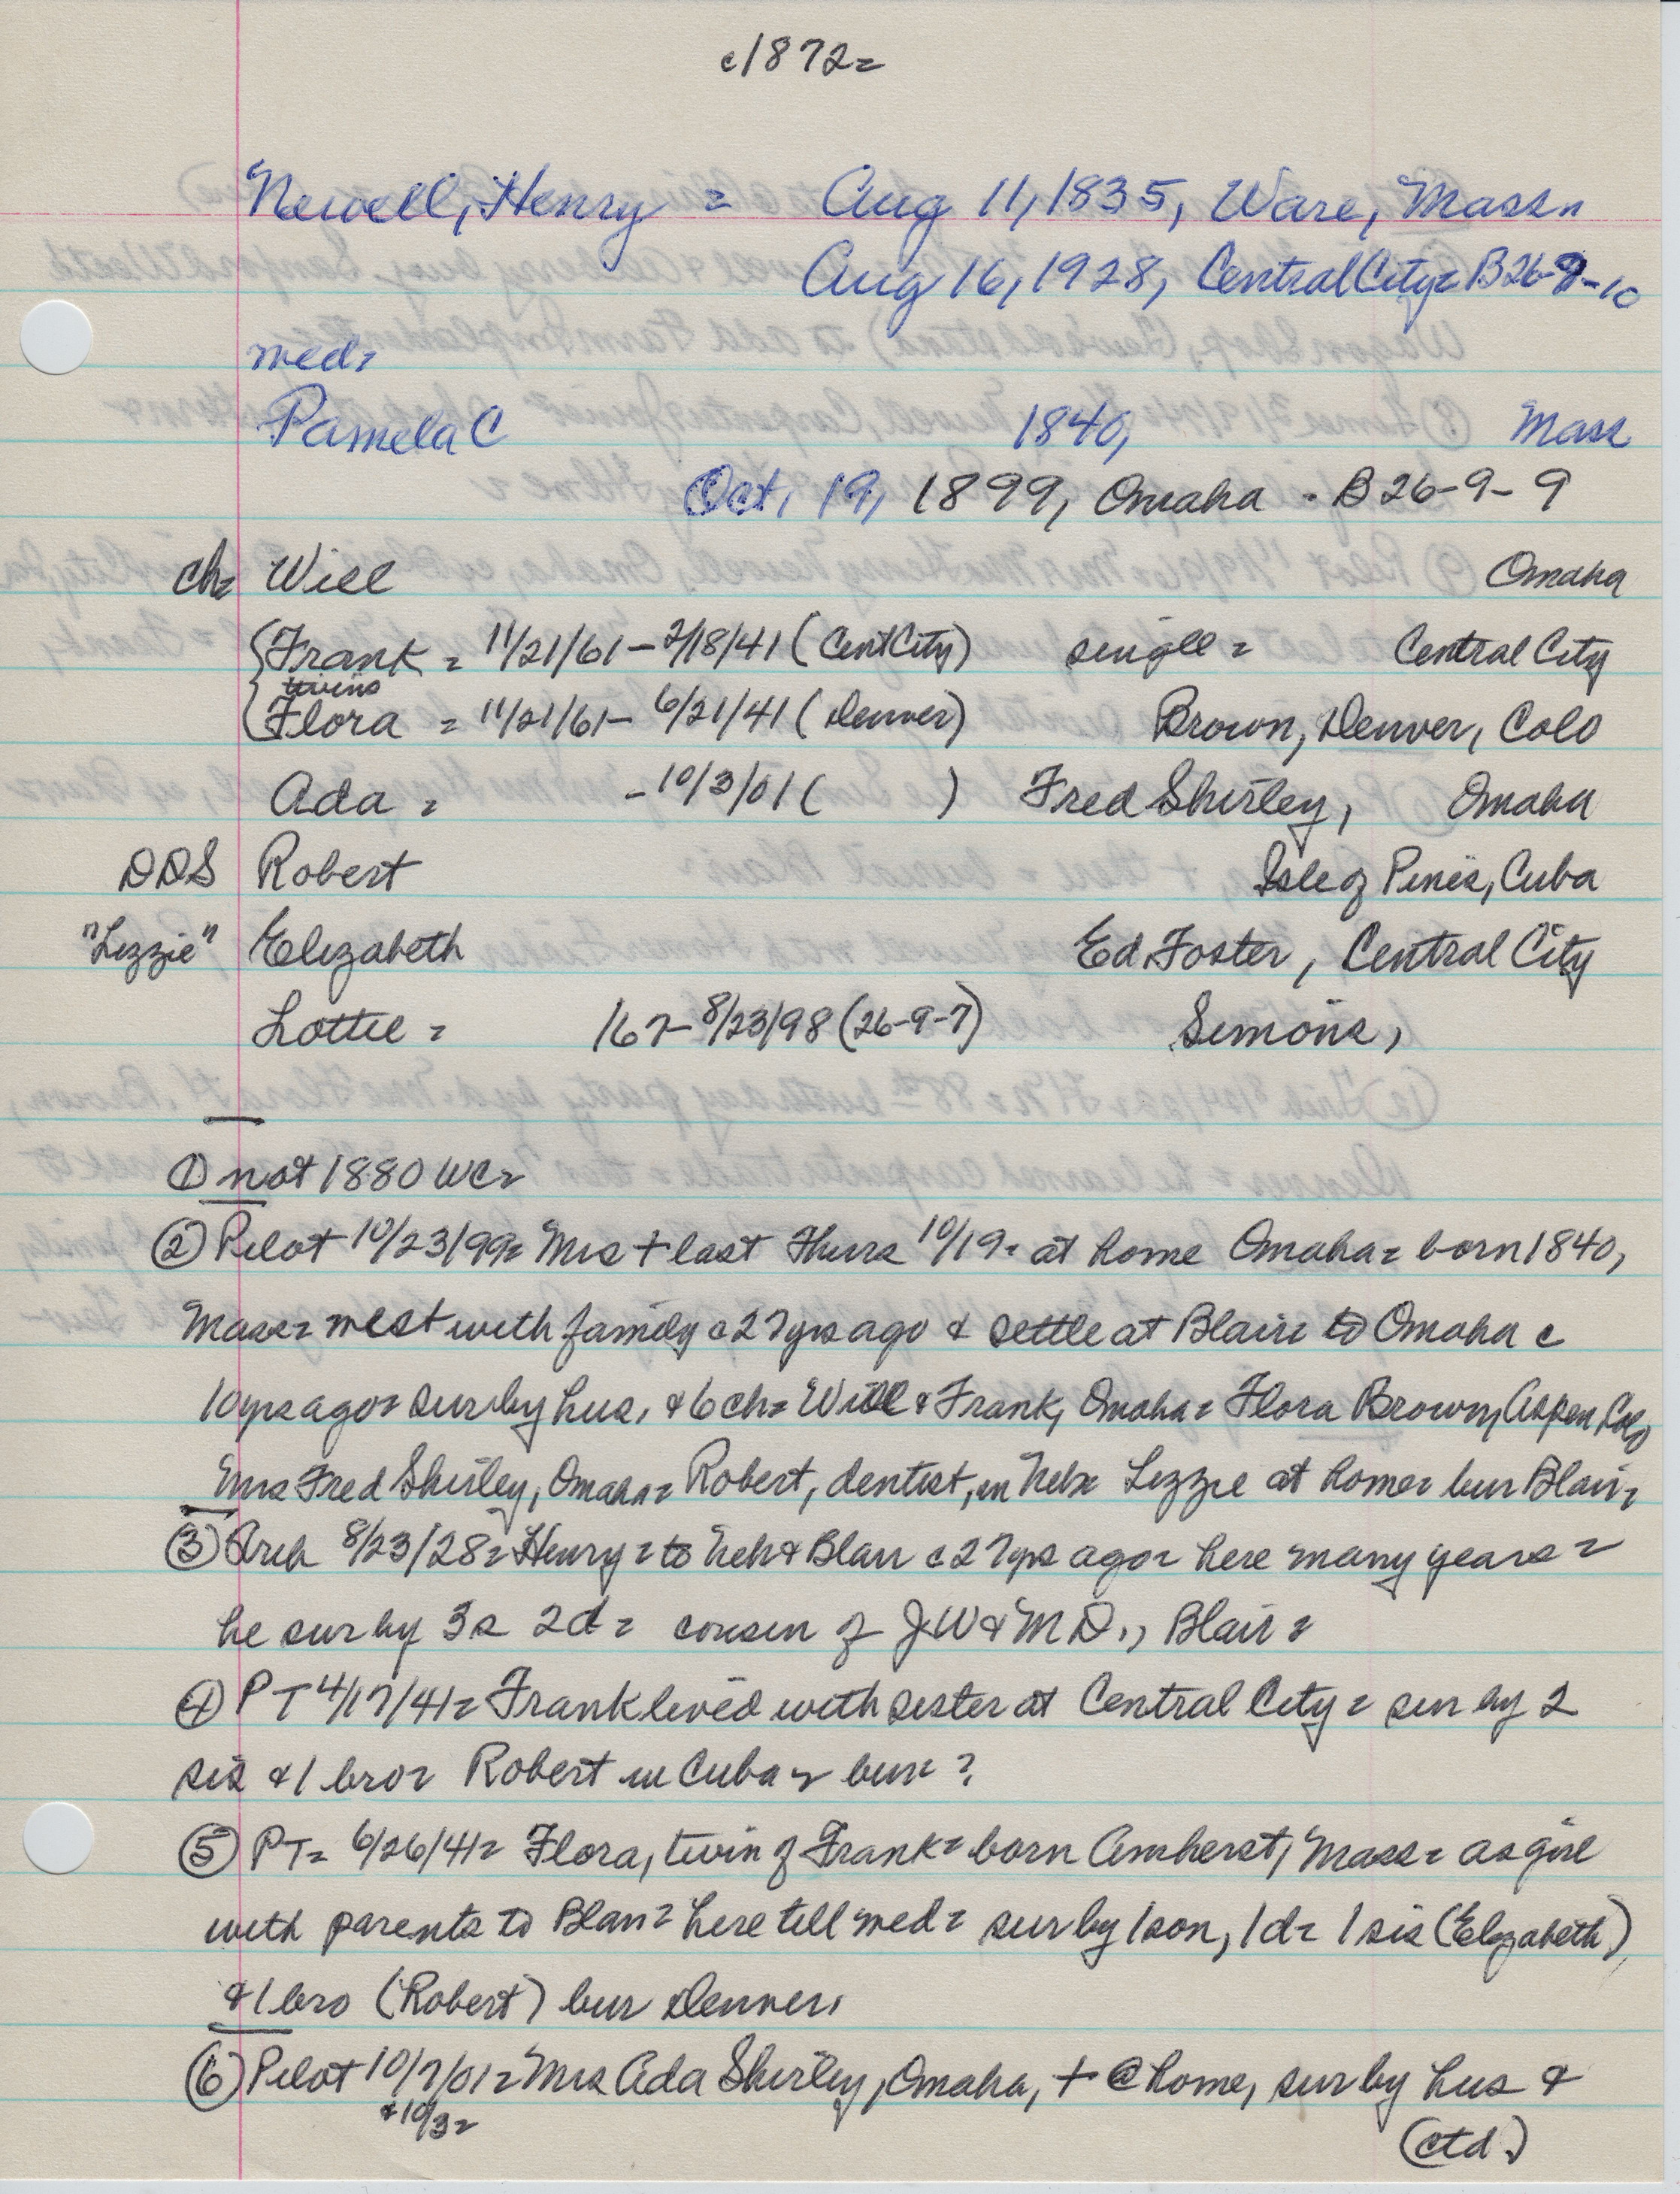 c1872=
Newell, Henry = Aug 11, 1835, Ware, Mass=
Aug 16, 1928, Central City= B26-9-10
med=
Pamela C 1840, Mass
Oct, 19, 1899, Omaha - B 26-9-9
ch= Will Omaha
{Frank = 11/21/61 - 2/18/41 (CentCity) single = Central City
twins
{Flora = 11/21/61 - 6/21/41 (Denver) Brown, Denver, Colo
Ada = - 10/3/01 ( ) Fred Shirley, Omaha
DDS Robert Isle of Pines, Cuba
"Lizzie" Elizabeth Ed Foster, Central City
Lottie = 167- 8/23/98 (26-9-7) Simons,
① not 1880 WC=
② Pilot 10/23/99= Mrs + last Thurs 10/19= at home Omaha= born 1840,
Mass= west with family c27yrs ago & settle at Blair= to Omaha c
10yrs ago= sur by hus, & 6 ch= Will & Frank, Omaha= Flora Brown, Aspen, Colo
Mrs Fred Shirley, Omaha= Robert, dentist, in Neb= Lizzie at home= bur Blair=
③ 8/23/28= Henry= to Neb & Blair c27yrs ago= here many years=
he sur by 3s 2d= cousin of JW & MD., Blair=
④ PT 4/17/41= Frank lived with sister at Central City= sur by 2
sis & 1 bro= Robert in Cuba= bur= ?
⑤ PT= 6/26/41= Flora, twin of Frank= born Amherst, Mass= as girl
with parents to Blair= here till med= sur by 1 son, 1 d= 1 sis (Elizabeth)
& 1 bro (Robert) bur Denver,
⑥ Pilot 10/7/01= Mrs Ada Shirley, Omaha, + @ home, sur by hus &
+10/3=
(ctd.)